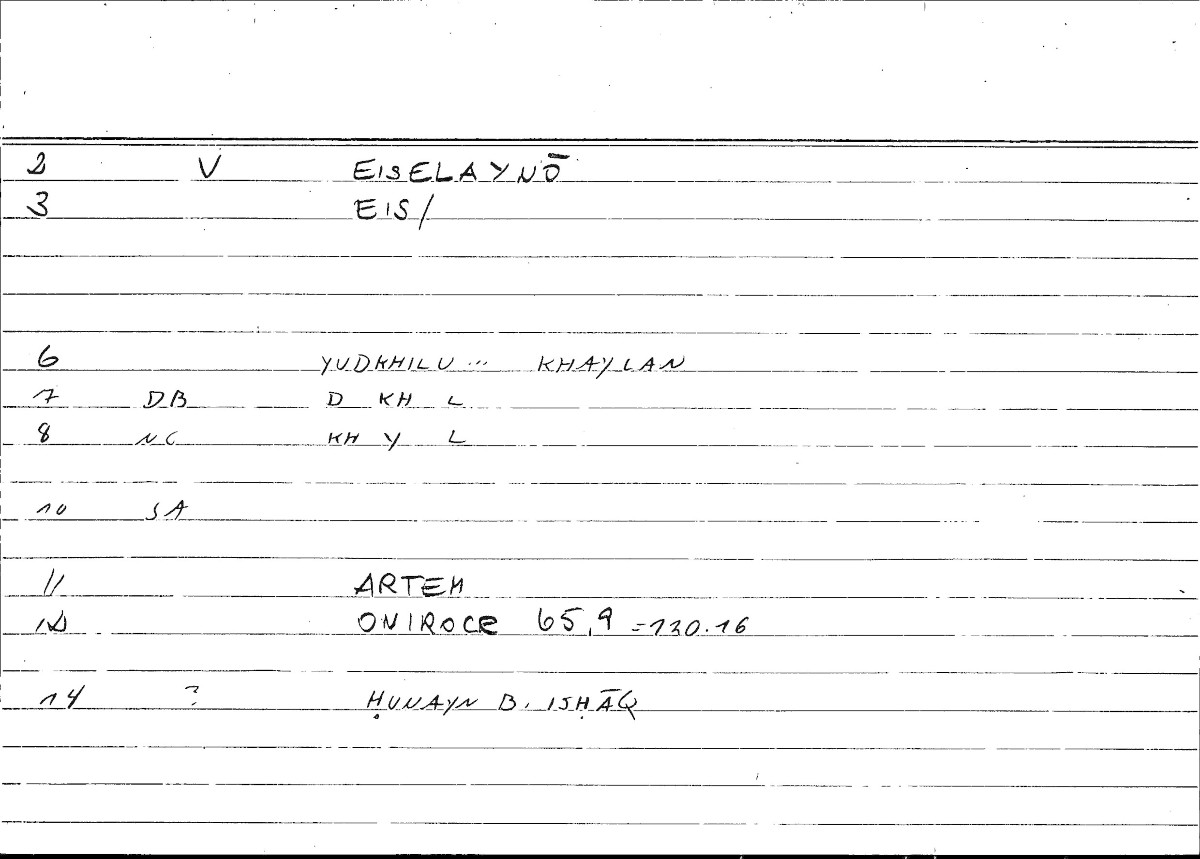 2 V EISELAYNŌ
3 EIS/
6 YUDKHILU ... KHAYLAN
7 DB D KH L
8 NC KH Y L
10 SA
11 ARTEM
12 ONIROCR 65,9 =120.16
14 ? ḤUNAYN B. ISḤĀQ